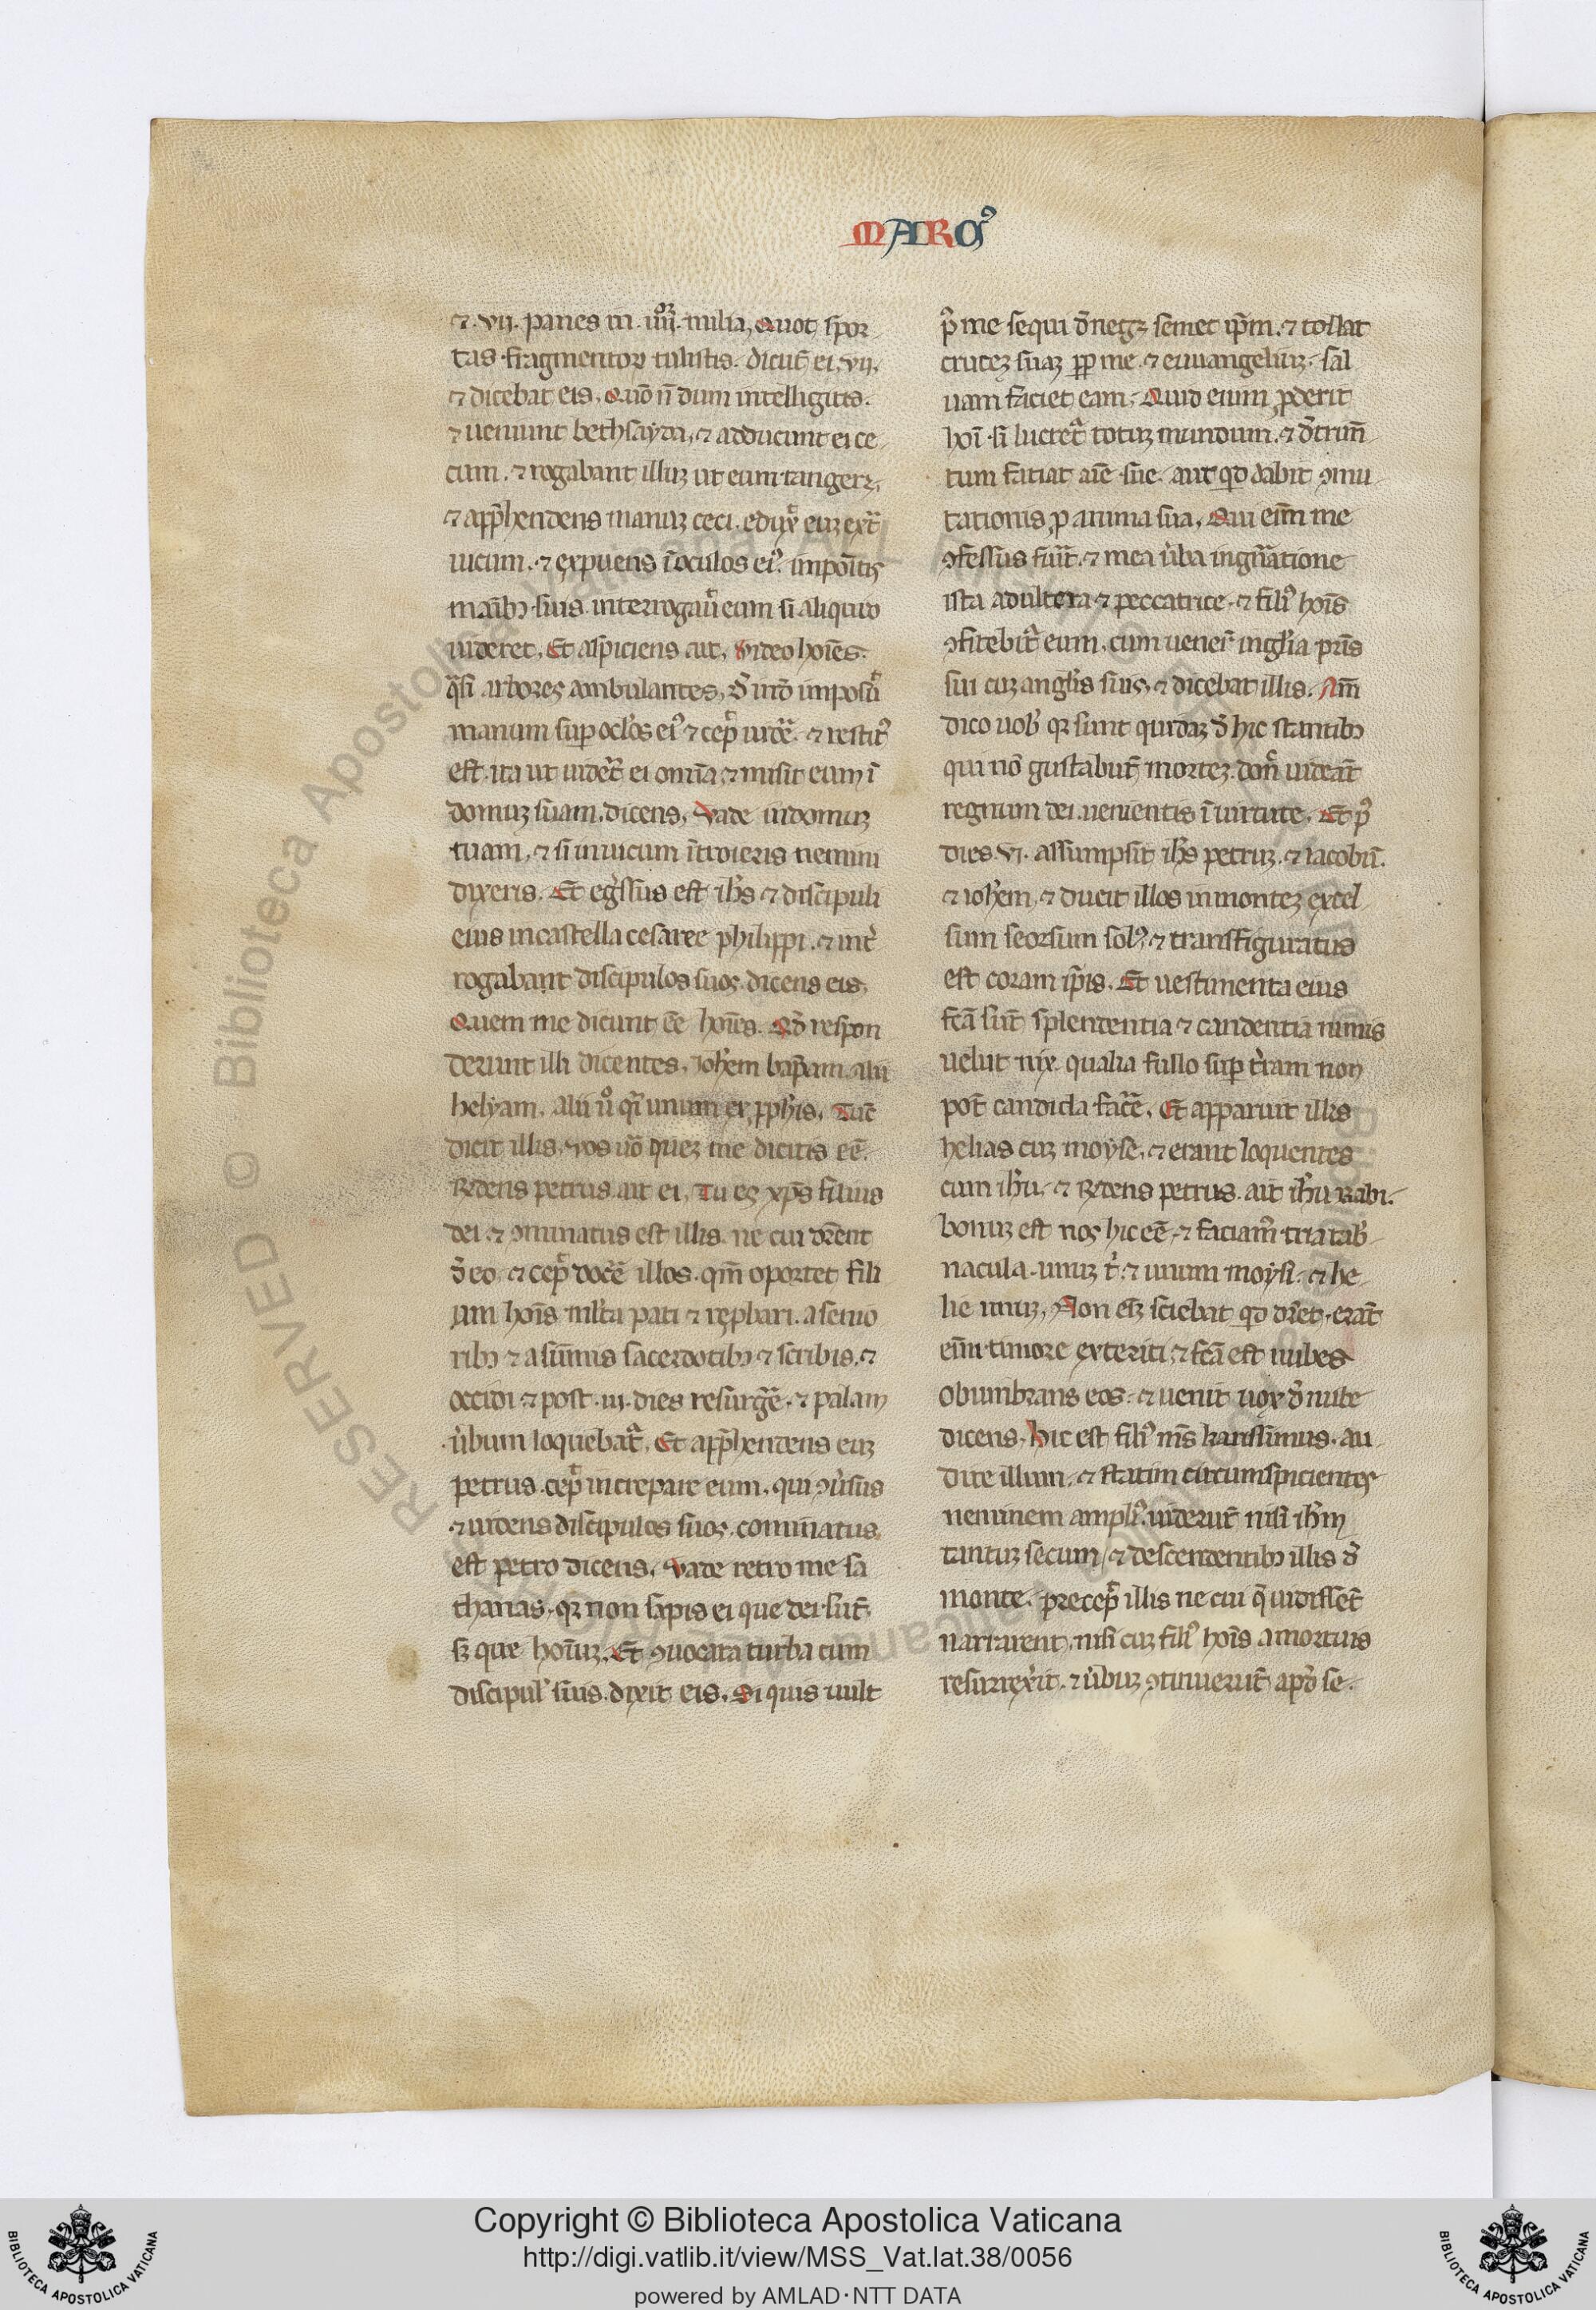 MARCꝰ
⁊ .vij. panes in .iiijor. milia, Quot spor
tas fragmentoꝝ tulistis. dicūt ei .vij.
⁊ dicebat eis. Quō nōdum intelligitis.
⁊ ueniunt bethsayda, ⁊ adducunt ei ce
cum. ⁊ rogabant illuꝫ ut eum tangerꝫ,
⁊ app̄hendens manuꝫ ceci. eduxͥ euꝫ extͣ
uicum. ⁊ expuens ī oculos eiꝰ. impoītis
maībꝫ suis. interrogauͥ eum si aliquid
uideret. Et aspiciens ait, Video hoīes.
qͣsi arbores ambulantes, d̄ind̄ imposuͥ
manum suꝑ oclōs eiꝰ ⁊ cepͥ uidēr. ⁊ restitꝰ
est. ita ut uidēt ei omnia, ⁊ misit eum ī
domuꝫ suam. dicens, Vade in domuꝫ
tuam, ⁊ si in uicum ītroieris nemini
dixeris. Et eg̃ssus est ih̄s ⁊ discipuli
eius in castella cesaree philippi. ⁊ int̄
rogabant discipulos suos. dicens eis,
Quem me dicunt eē hoīes. Qd̄ respon
derunt illi dicentes, Joh̄em bap̄am. alii
helyam. alii uͦ qͣi unum ex ꝓph̄is. Tūc
dicit illis, vos uō queꝫ me dicitis eē.
Rn̄dens petrus. ait ei, Tu es xp̄s filius
dei. ⁊ ꝯminatus est illis. ne cui dīcent
d̄ eo. ⁊ cepͥ docēr illos. qm̄ oportet fili
um hoīs mlta pati ⁊ rep̄bari. a senio
ribꝫ ⁊ a sūmis sacerdotibꝫ ⁊ scribis. ⁊
occidi ⁊ post .iij. dies resurgēr. ⁊ palam
ūbum loquebatͬ. Et app̄hendens euꝫ
petrus. cepͥ increpare eum. qui ꝯūsus
⁊ uidens discipulos suos. cominatus
est petro dicens, Vade retro me sa
thanas. qꝛ non sapis ei que dei sūt.
sꝫ que hoīuꝫ. Et ꝯuocata turba cum
discipul' suis. dixit eis. Si quis uult
p̄ me sequi d̄negꝫ semet ip̄m. ⁊ tollat
cruceꝫ suaꝫ ꝓp me. ⁊ euuangeliuꝫ. sal
uam faciet eam. Quid enim ꝓderit
hoī. si lucretͬ totuꝫ mundum. ⁊ d̄trim̄
tum faciat aīe sue. aut qd dabit ꝯmu
tationis ꝓ anima sua. Qui enī me
ꝯfessus fuīt. ⁊ mea ūba in gn̄atione
ista adultera ⁊ peccatrice. ⁊ filiꝰ hoīs
ꝯfitebitͬ eum. cum uenerͥ in gl̄ia pr̄is
sui cuꝫ angl̄is suis. ⁊ dicebat illis. Am̄
dico uob' qꝛ sunt quidaꝫ d̄ hic stantibꝫ
qui nō gustabūt morteꝫ. don̄ uideāt
regnum dei. uenientis ī uirtute. Et p̄
dies .vi. assumpsit ih̄s petruꝫ. ⁊ iacobū.
⁊ ioh̄em, ⁊ ducit illos in monteꝫ excel
sum seorsum solꝰ. ⁊ transfiguratus
est coram ip̄is. Et uestimenta eius
fc̄a sūt splendentia ⁊ candentia nimis
uelut nix. qualia fullo suꝑ t̄ram non
pot̄ candida facēr. Et apparuit illis
helias cuꝫ moyse, ⁊ erant loquentes
cum ih̄u. ⁊ rn̄dens petrus. ait ih̄u rabi.
bonuꝫ est nos hic eē. ⁊ faciamꝰ tria tab̄
nacula. unuꝫ tͥ. ⁊ unum moysi. ⁊ he
lie unuꝫ, Non eīꝫ sciebat qd dīcet. erāt
enī timore exteriti, ⁊ fc̄a est nubes
obumbrans eos. ⁊ uenit uox d̄ nube
dicens. Hic est filiꝰ m̄s karissimus. au
dite illum. ⁊ statim circumspicientes
neminem ampliꝰ. uiderūt nisi ih̄m
tantuꝫ secum, ⁊ descendentibꝫ illis d̄
monte. precepͥ illis ne cui q̄ uidissēt
narrarent. nisi cuꝫ filiꝰ hoīs a mortuis
resurrexīt. ⁊ ūbuꝫ ꝯtinuerūt apd̄ se.
Copyright © Biblioteca Apostolica Vaticana
http://digi.vatlib.it/view/MSS_Vat.lat.38/0056
powered by AMLAD·NTT DATA
BIBLIOTECA APOSTOLICA VATICANA
BIBLIOTECA APOSTOLICA VATICANA